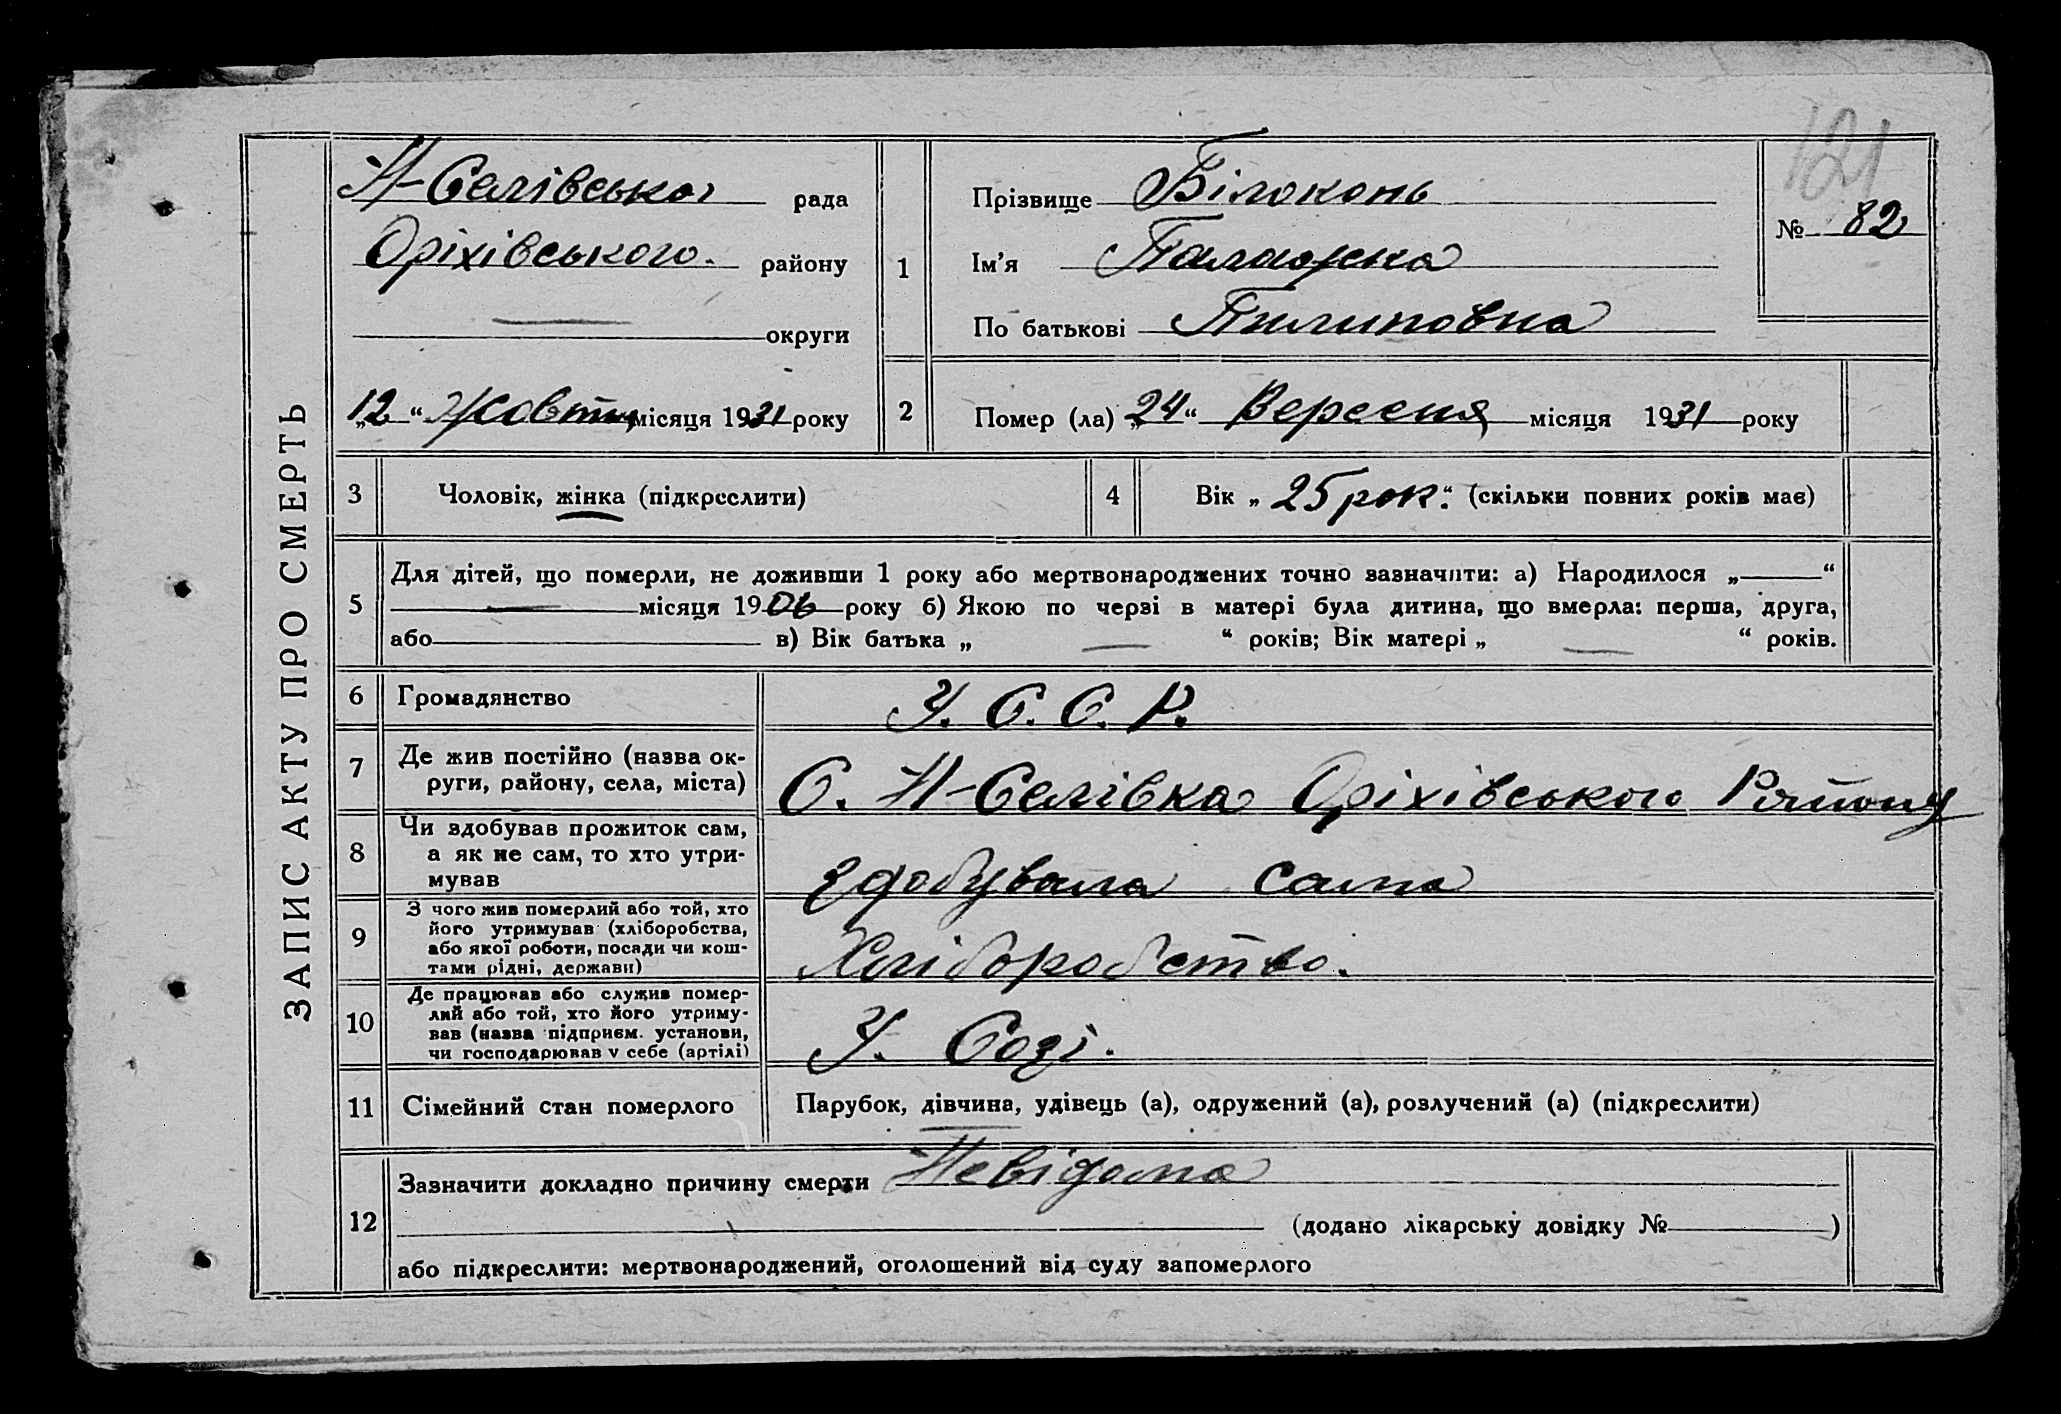 121
ЗАПИС АКТУ ПРО СМЕРТЬ
Н-Селівська рада
Оріхівського. району
округи
„12“ Жовтня місяця 1931 року
1
Прізвище Білоконь
Ім’я Палажка
По батькові Пилиповна
№ 82
2
Помер (ла) „24“ Вересня місяця 1931 року
3
Чоловік, жінка (підкреслити)
4
Вік „25 рок.“ (скільки повних років має)
5
Для дітей, що померли, не доживши 1 року або мертвонароджених точно зазначити: а) Народилося „—“
— місяця 1906 року б) Якою по черзі в матері була дитина, що вмерла: перша, друга,
або в) Вік батька „ — “ років; Вік матері „ — “ років.
6
Громадянство
У. С. С. Р.
7
Де жив постійно (назва ок-
руги, району, села, міста)
С. Н-Селівка Оріхівського Району
8
Чи здобував прожиток сам,
а як не сам, то хто утри-
мував
здобувала сама
9
З чого жив померлий або той, хто
його утримував (хліборобства,
або якої роботи, посади чи кош-
тами рідні, держави)
Хліборобство.
10
Де працював або служив помер-
лий або той, хто його утриму-
вав (назва підприєм. установи,
чи господарював у себе (артілі)
У. Созі.
11
Сімейний стан померлого
Парубок, дівчина, удівець (а), одружений (а), розлучений (а) (підкреслити)
12
Зазначити докладно причину смерти Невідома
(додано лікарську довідку № )
або підкреслити: мертвонароджений, оголошений від суду запомерлого